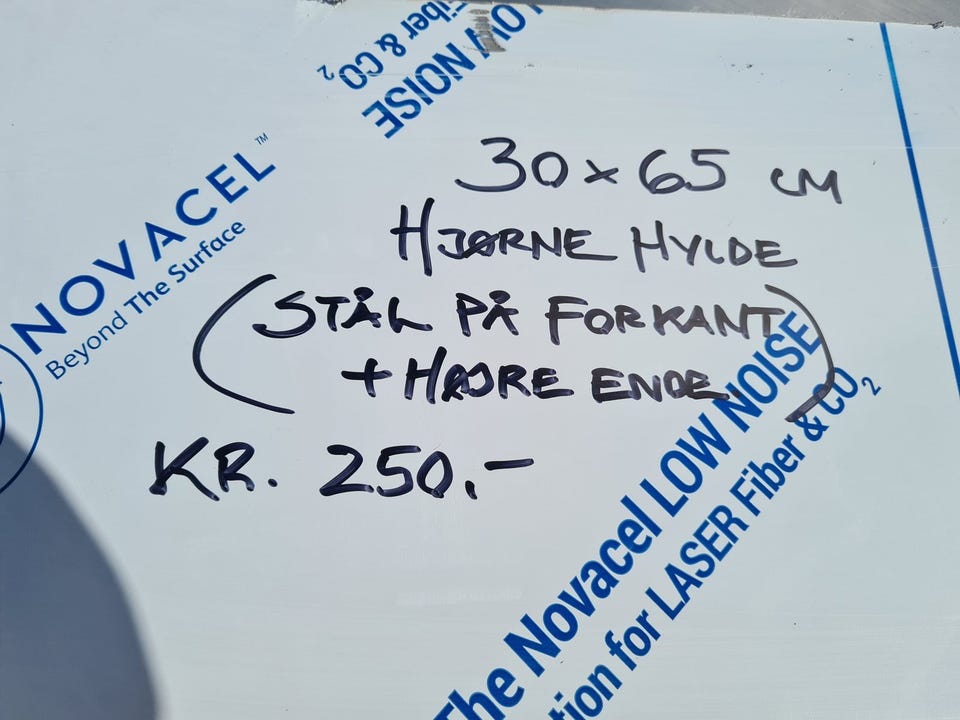 Fiber & CO2
LOW NOISE
NOVACEL™
Beyond The Surface
30 x 65 CM
HJØRNE HYLDE
(STÅL PÅ FORKANT
+ HØJRE ENDE)
KR. 250.-
The Novacel LOW NOISE
for LASER Fiber & CO2